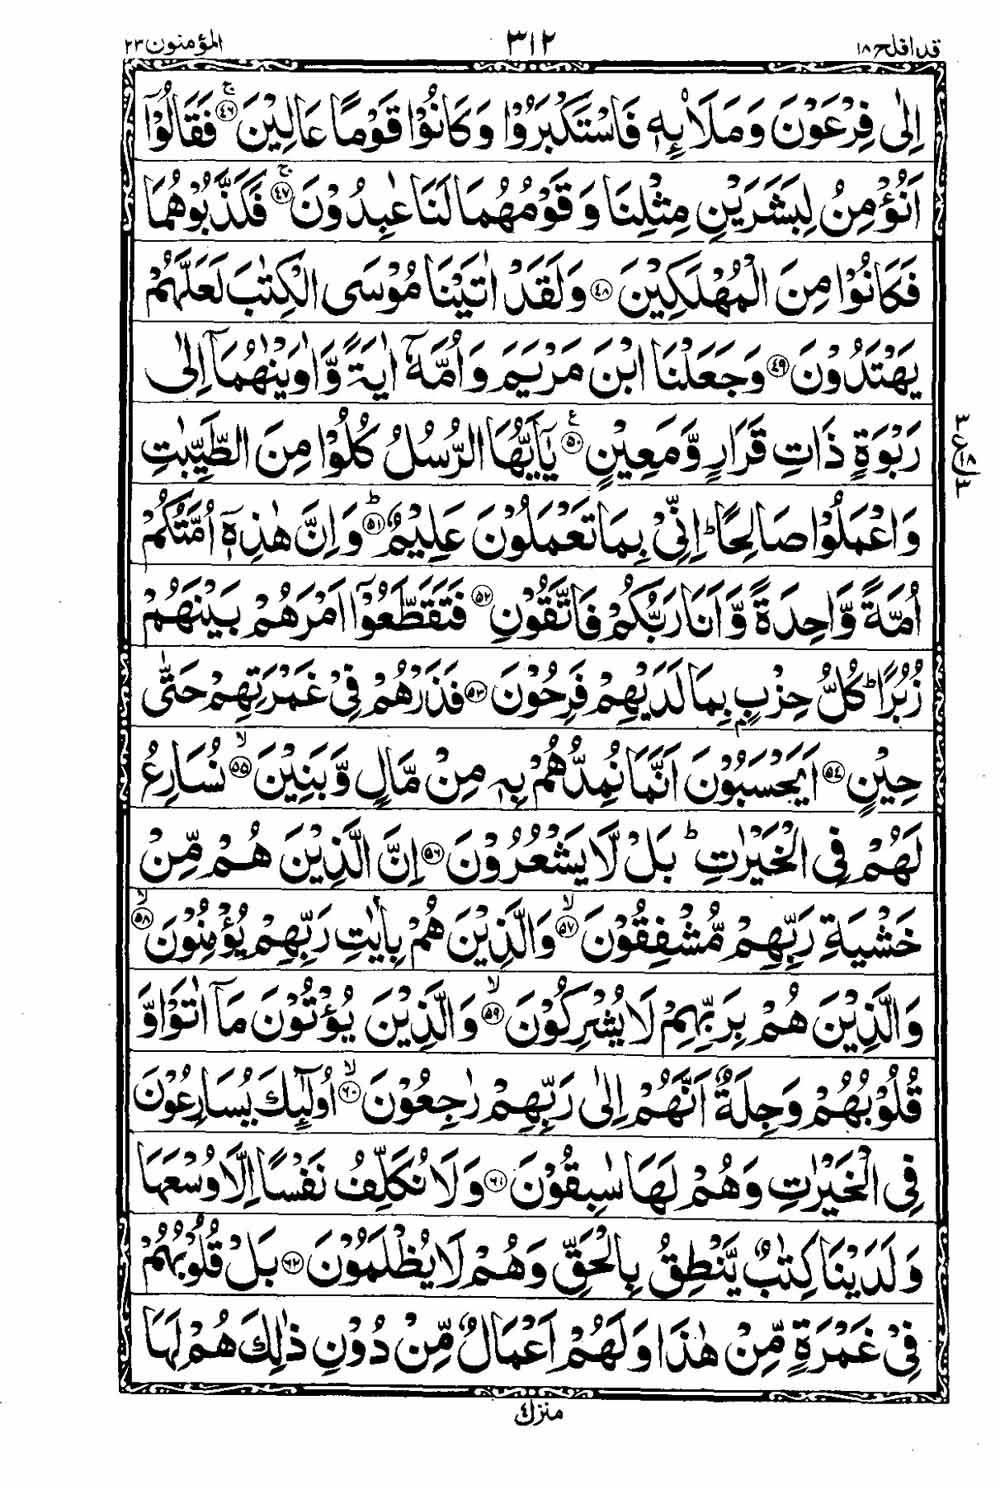 قد افلح ۱۸
۳۱۲
المؤمنون ۲۳
اِلٰى فِرْعَوْنَ وَمَلَا۟ئِهٖ فَاسْتَكْبَرُوْا وَكَانُوْا قَوْمًا عَالِيْنَ ۚ‏﴿۴۶﴾ فَقَالُوْۤا
اَنُؤْمِنُ لِبَشَرَيْنِ مِثْلِنَا وَقَوْمُهُمَا لَنَا عٰبِدُوْنَ ۚ‏﴿۴۷﴾ فَكَذَّبُوْهُمَا
فَكَانُوْا مِنَ الْمُهْلَكِيْنَ ‏﴿۴۸﴾ وَلَقَدْ اٰتَيْنَا مُوْسَى الْكِتٰبَ لَعَلَّهُمْ
يَهْتَدُوْنَ ‏﴿۴۹﴾ وَجَعَلْنَا ابْنَ مَرْيَمَ وَاُمَّهٗۤ اٰيَةً وَّاٰوَيْنٰهُمَاۤ اِلٰى
رَبْوَةٍ ذَاتِ قَرَارٍ وَّمَعِيْنٍ ‏﴿۵۰﴾ ع يٰۤاَيُّهَا الرُّسُلُ كُلُوْا مِنَ الطَّيِّبٰتِ
وَاعْمَلُوْا صَالِحًا ؕ اِنِّىْ بِمَا تَعْمَلُوْنَ عَلِيْمٌ ؕ‏﴿۵۱﴾ وَاِنَّ هٰذِهٖۤ اُمَّتُكُمْ
اُمَّةً وَّاحِدَةً وَّاَنَا رَبُّكُمْ فَاتَّقُوْنِ ‏﴿۵۲﴾ فَتَقَطَّعُوْۤا اَمْرَهُمْ بَيْنَهُمْ
زُبُرًا ؕ كُلُّ حِزْبٍۭ بِمَا لَدَيْهِمْ فَرِحُوْنَ ‏﴿۵۳﴾ فَذَرْهُمْ فِىْ غَمْرَتِهِمْ حَتّٰى
حِيْنٍ ‏﴿۵۴﴾ اَيَحْسَبُوْنَ اَنَّمَا نُمِدُّهُمْ بِهٖ مِنْ مَّالٍ وَّبَنِيْنَ ۙ‏﴿۵۵﴾ نُسَارِعُ
لَهُمْ فِى الْخَيْرٰتِ ؕ بَلْ لَّا يَشْعُرُوْنَ ‏﴿۵۶﴾ اِنَّ الَّذِيْنَ هُمْ مِّنْ
خَشْيَةِ رَبِّهِمْ مُّشْفِقُوْنَ ۙ‏﴿۵۷﴾ وَالَّذِيْنَ هُمْ بِاٰيٰتِ رَبِّهِمْ يُؤْمِنُوْنَ ۙ‏﴿۵۸﴾
وَالَّذِيْنَ هُمْ بِرَبِّهِمْ لَا يُشْرِكُوْنَ ۙ‏﴿۵۹﴾ وَالَّذِيْنَ يُؤْتُوْنَ مَاۤ اٰتَوْا وَّ
قُلُوْبُهُمْ وَجِلَةٌ اَنَّهُمْ اِلٰى رَبِّهِمْ رٰجِعُوْنَ ۙ‏﴿۶۰﴾ اُولٰٓئِكَ يُسَارِعُوْنَ
فِى الْخَيْرٰتِ وَهُمْ لَهَا سٰبِقُوْنَ ‏﴿۶۱﴾ وَلَا نُكَلِّفُ نَفْسًا اِلَّا وُسْعَهَا
وَلَدَيْنَا كِتٰبٌ يَّنْطِقُ بِالْحَقِّ وَهُمْ لَا يُظْلَمُوْنَ ‏﴿۶۲﴾ بَلْ قُلُوْبُهُمْ
فِىْ غَمْرَةٍ مِّنْ هٰذَا وَلَهُمْ اَعْمَالٌ مِّنْ دُوْنِ ذٰلِكَ هُمْ لَهَا
منزل ۴